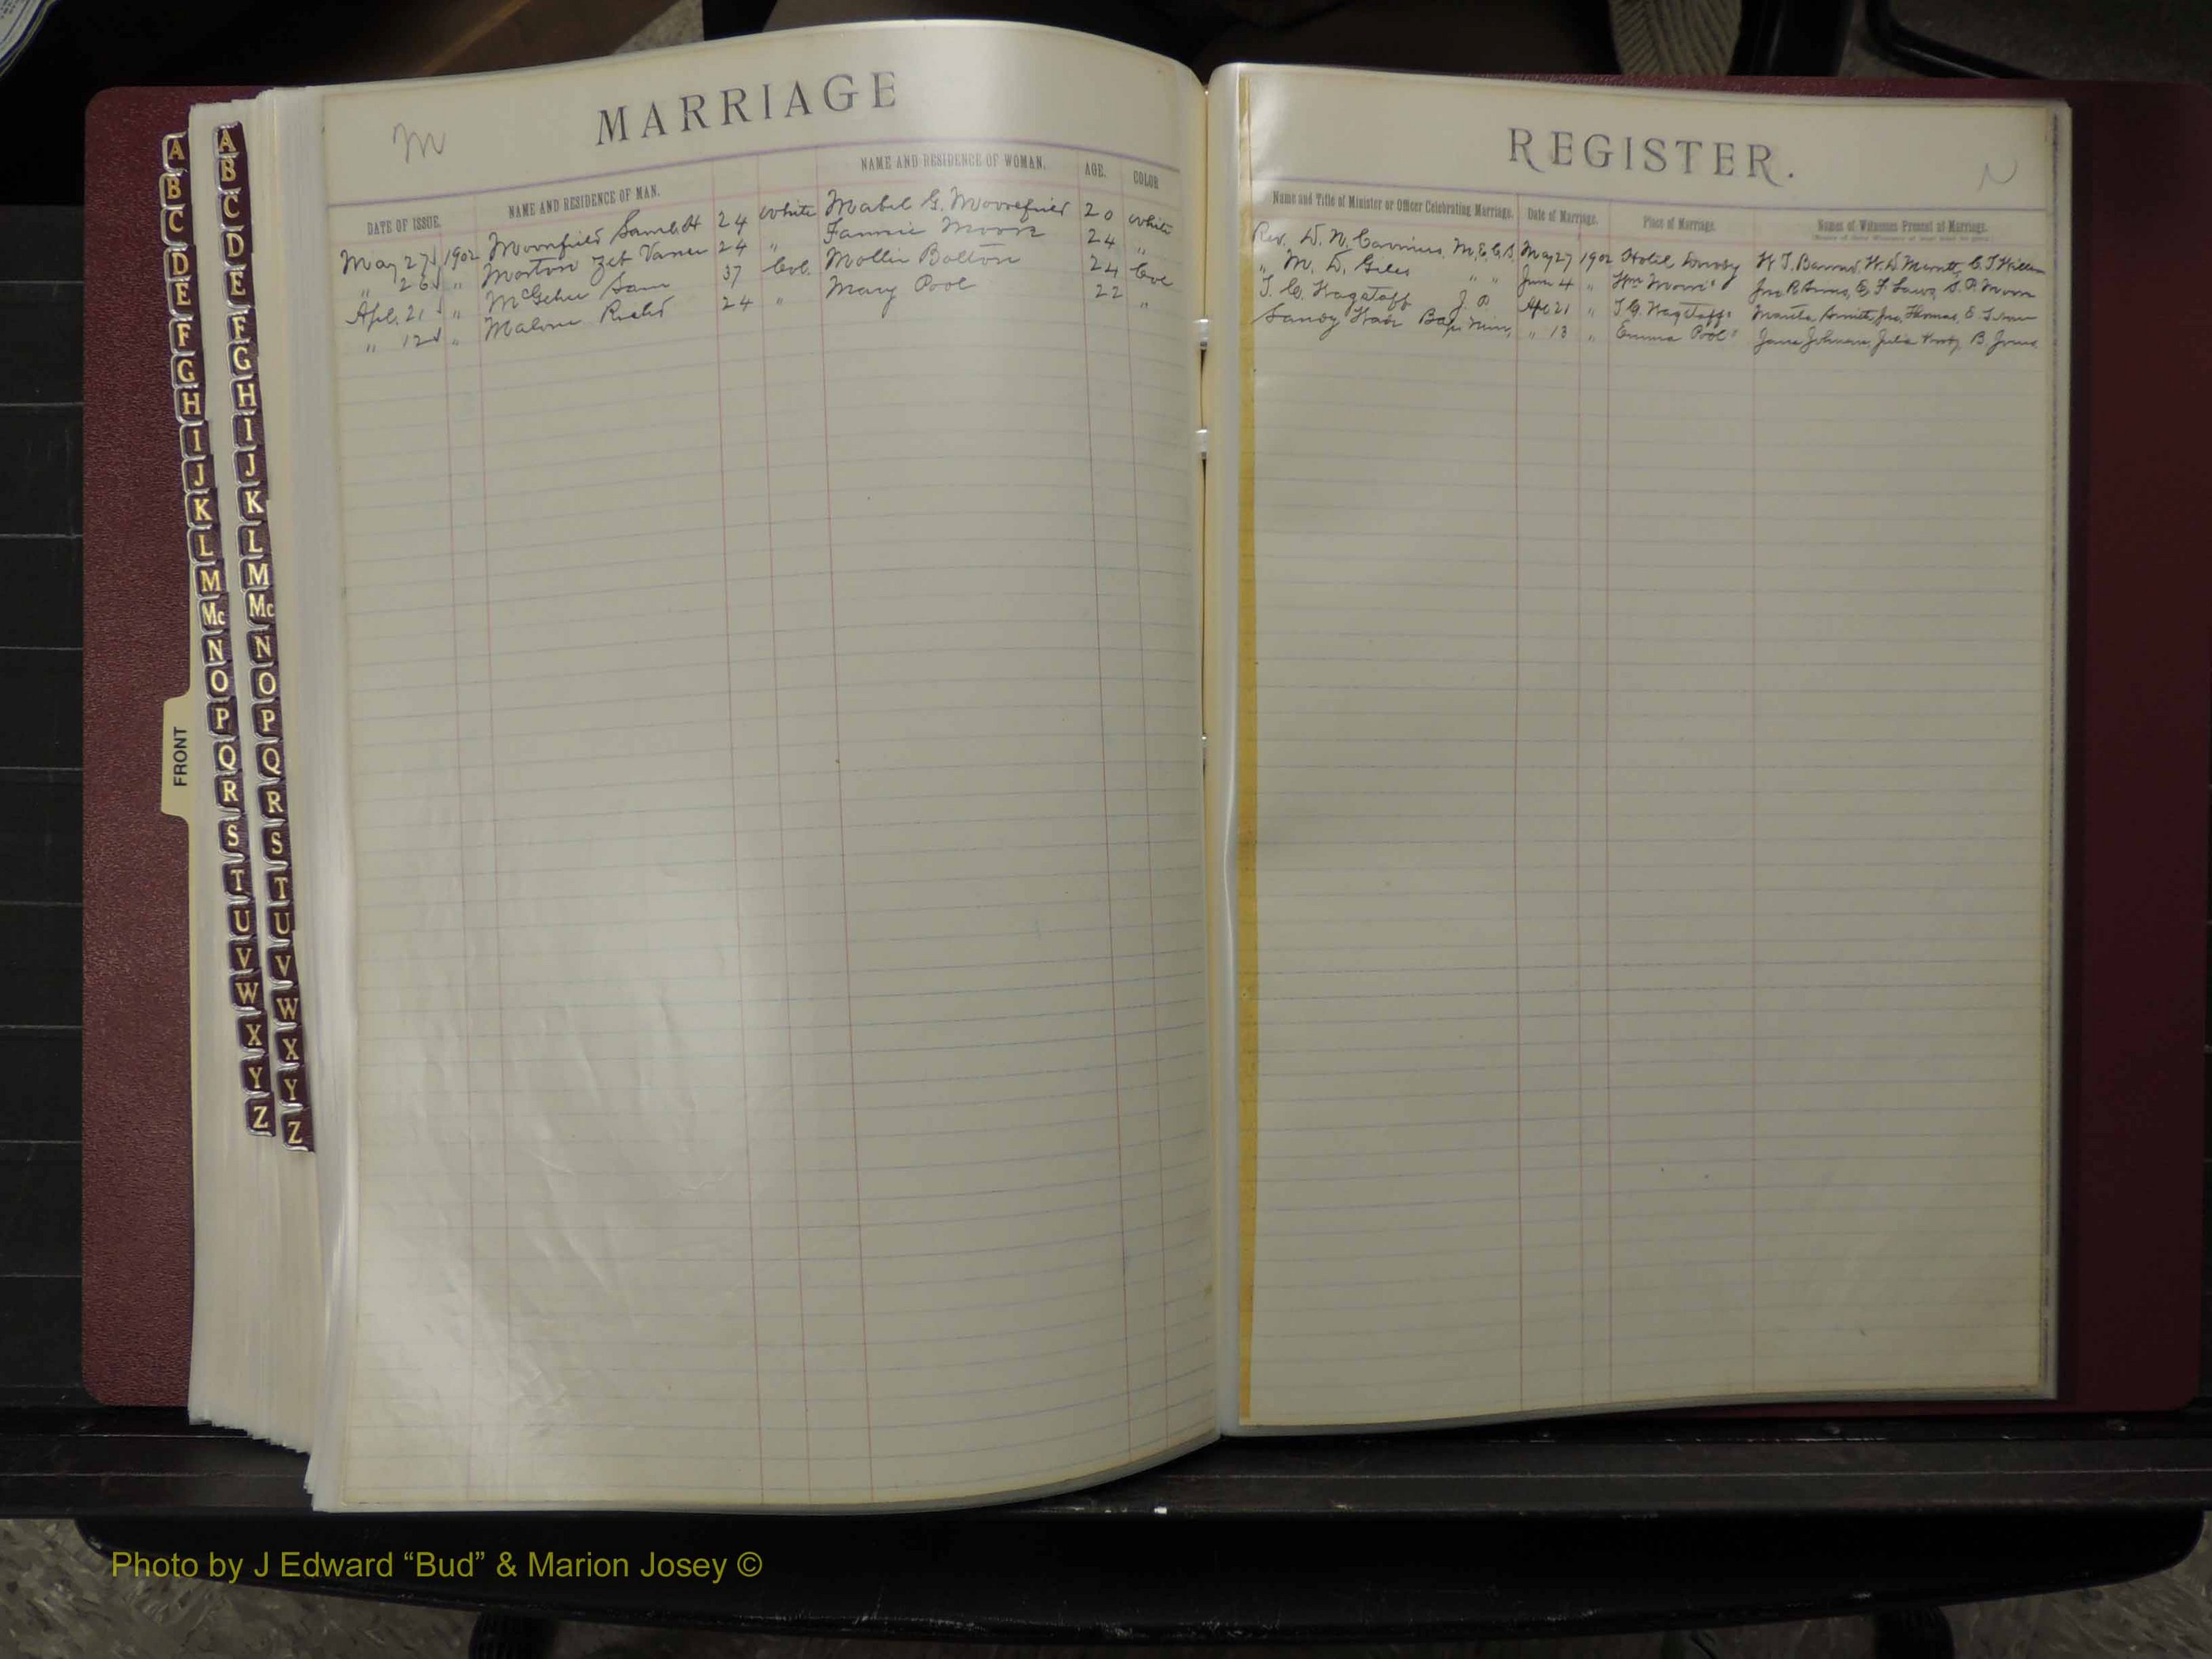 MARRIAGE
M
DATE OF ISSUE. NAME AND RESIDENCE OF MAN. NAME AND RESIDENCE OF WOMAN. AGE. COLOR
May 27 1902 Moorefield Saml. H 24 White Mabel G. Moorefield 20 White
" 26 " Morton Zeb Vance 24 " Fannie Moore 24 "
Apl. 21 " McGehee Sam 37 Col. Mollie Bolton 24 Col
" 12 " Malone Richd 24 " Mary Pool 22 "
REGISTER.
N
Name and Title of Minister or Officer Celebrating Marriage. Date of Marriage. Place of Marriage. Names of Witnesses Present at Marriage.
Rev. D. N. Caviness M.E.C.S. May 27 1902 Hotel W. D. Merritt
" M. D. Giles " " June 4 "
T. C. Wagstaff J. P. Apl 21 " T. C. Wagstaff's Jno. Thomas
Sandy " 13 " Emma Pool's Jane Johnson, Julia B. Jones
A
B
C
D
E
F
G
H
I
J
K
L
M
Mc
N
O
P
Q
R
S
T
U
V
W
X
Y
Z
A
B
C
D
E
F
G
H
I
J
K
L
M
Mc
N
O
P
Q
R
S
T
U
V
W
X
Y
Z
FRONT
Photo by J Edward “Bud” & Marion Josey ©